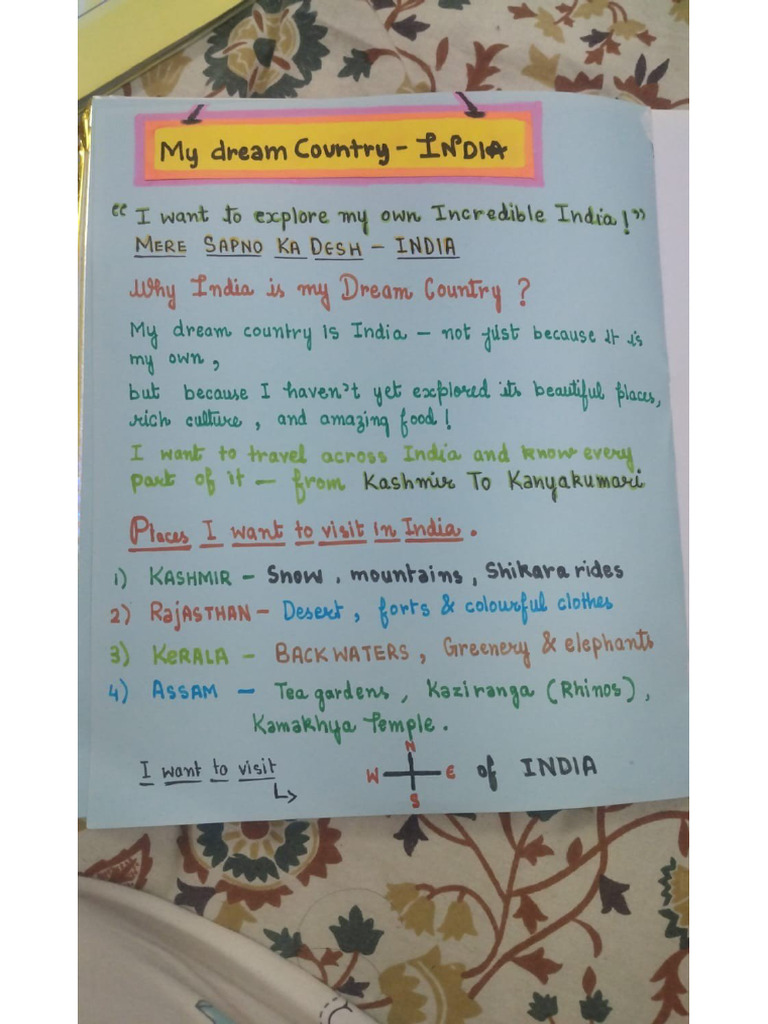 My dream Country - INDIA
"I want to explore my own Incredible India!"
MERE SAPNO KA DESH - INDIA
Why India is my Dream Country ?
My dream country Is India - not just because it is
my own,
but because I haven't yet explored its beautiful places,
rich culture, and amazing food!
I want to travel across India and know every
part of it - from Kashmir To Kanyakumari
Places I want to visit in India.
1) KASHMIR - Snow, mountains, Shikara rides
2) RajASTHAN - Desert, forts & colourful clothes
3) KERALA - BACKWATERS, Greenery & elephants
4) ASSAM - Tea gardens, Kaziranga (Rhinos),
Kamakhya Temple.
N
I want to visit W E of INDIA
S